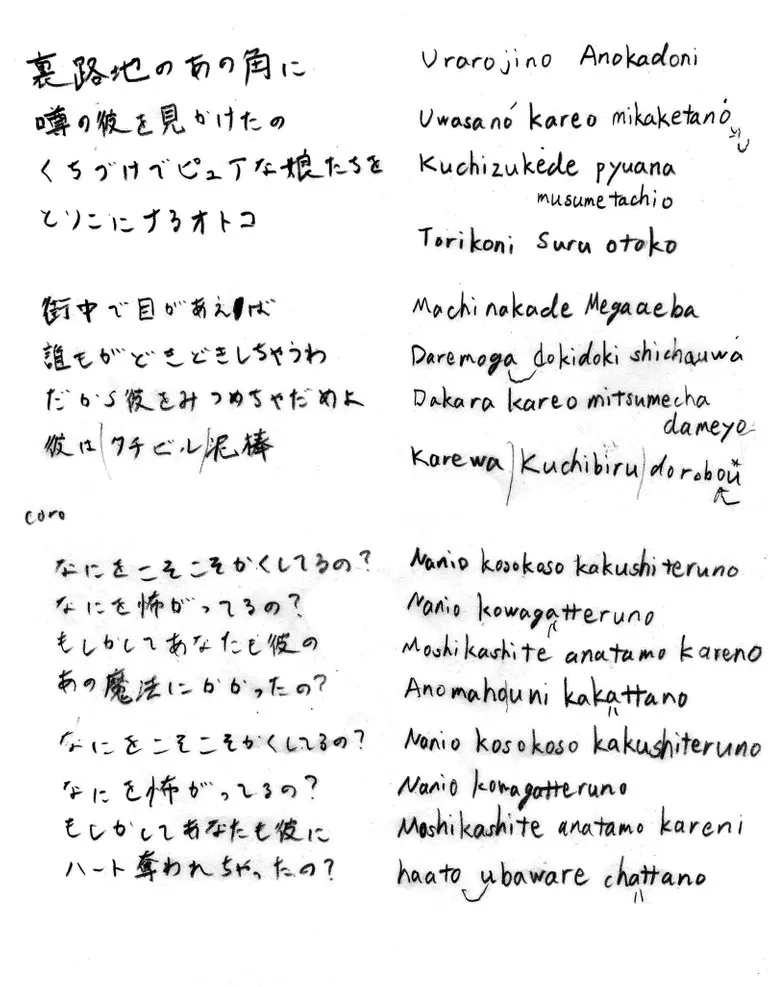 裏路地のあの角に Urarojino Anokadoni
噂の彼を見かけたの Uwasano kareo mikaketano
くちづけでピュアな娘たちを Kuchizukede pyuana
musumetachio
とりこにするオトコ Torikoni Suru otoko
街中で目があえば Machinakade Megaaeba
誰もがどきどきしちゃうわ Daremoga dokidoki shichauwa
だから彼をみつめちゃだめよ Dakara kareo mitsumecha
dameyo
彼は/クチビル/泥棒 Karewa/Kuchibiru/dorobou*
coro
なにをこそこそかくしてるの? Nanio kosokoso kakushiteruno
なにを怖がってるの? Nanio kowagatteruno
もしかしてあなたも彼の Moshikashite anatamo kareno
あの魔法にかかったの? Anomahouni kakattano
なにをこそこそかくしてるの? Nanio kosokoso kakushiteruno
なにを怖がってるの? Nanio kowagatteruno
もしかしてあなたも彼に Moshikashite anatamo kareni
ハート奪われちゃったの? haato ubaware chattano